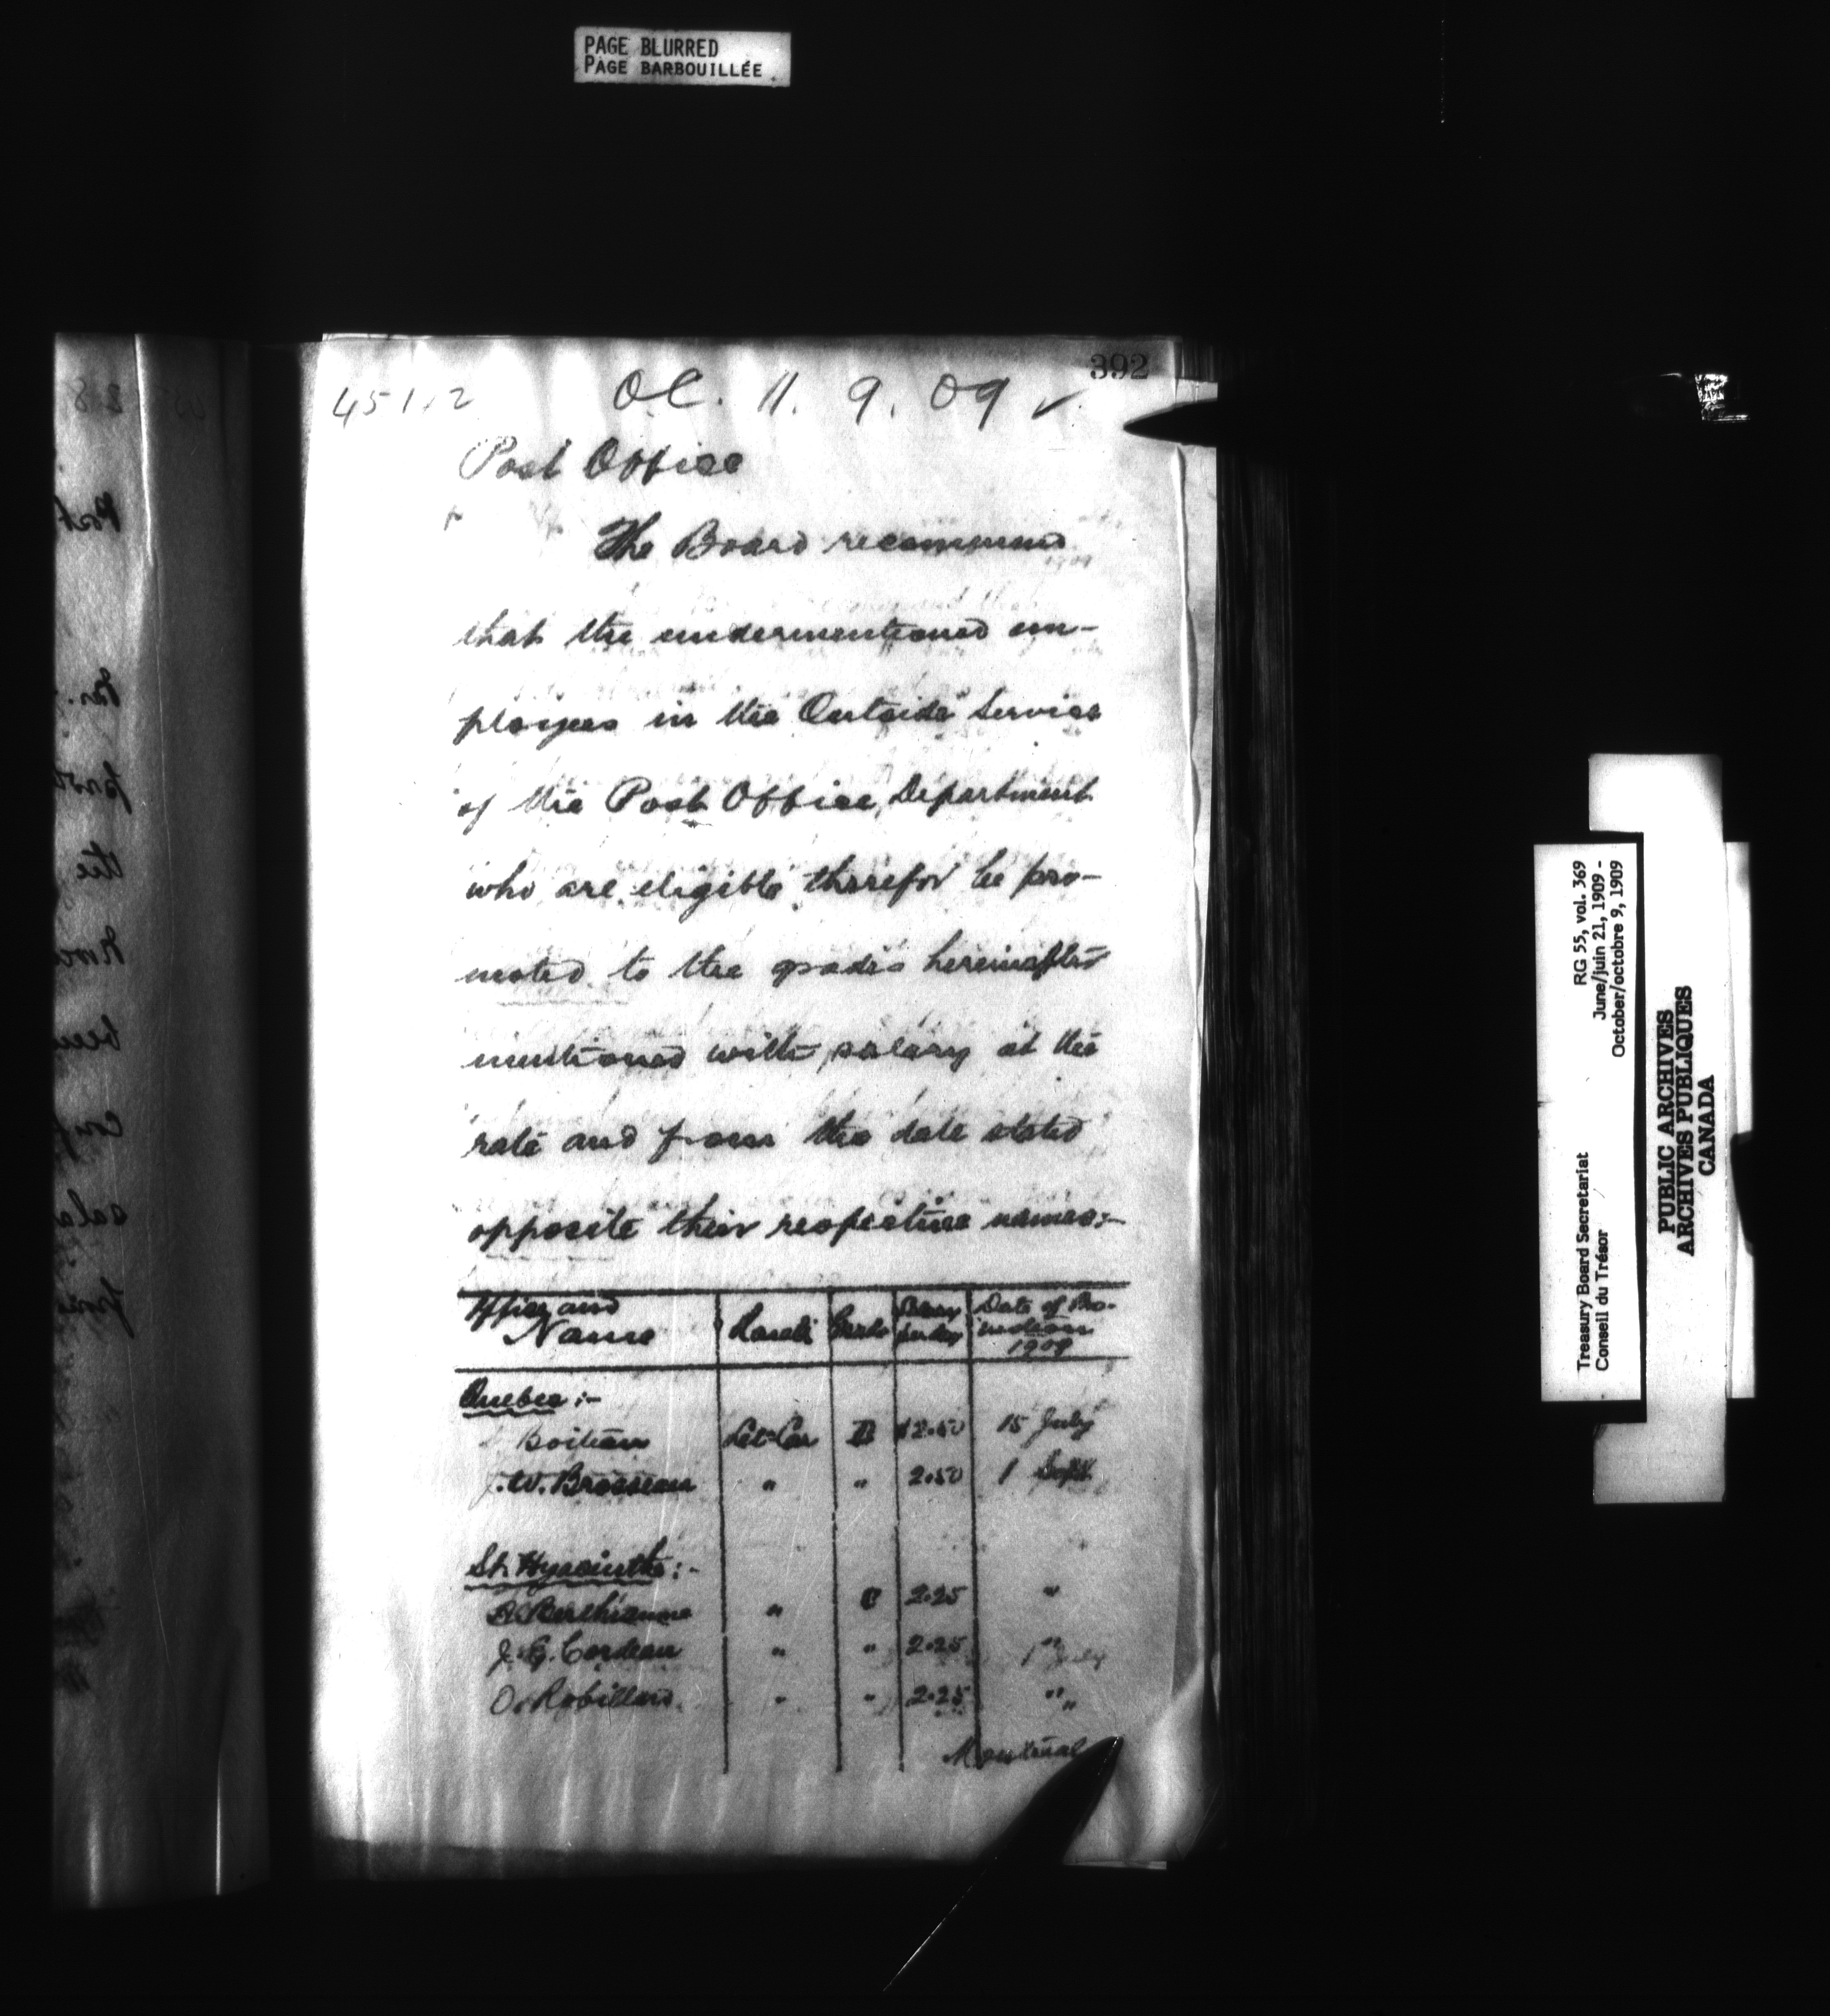 PAGE BLURRED
PAGE BARBOUILLÉE
392
451.2 O.C. 11. 9. 09 ✓
Post Office
The Board recommend
that the undermentioned em-
ployees in the Outside Service
of the Post Office Department
who are eligible therefor be pro-
moted to the grades hereinafter
mentioned with salary at the
rate and from the date stated
opposite their respective names:-
Office and Name Rank Grade Salary per day Date of Pro-motion 1909
Quebec :-
Boiteau Let-Car B $2.50 15 July
J. W. Brosseau " " 2.50 1 Sept.
St. Hyacinthe :-
Berthiaume " C 2.25 "
J. G. Cordeau " " 2.25 1 July
O. Robillard " " 2.25 "
Montreal
Treasury Board Secretariat RG 55, vol. 369
Conseil du Trésor June/juin 21, 1909 -
October/octobre 9, 1909
PUBLIC ARCHIVES
ARCHIVES PUBLIQUES
CANADA